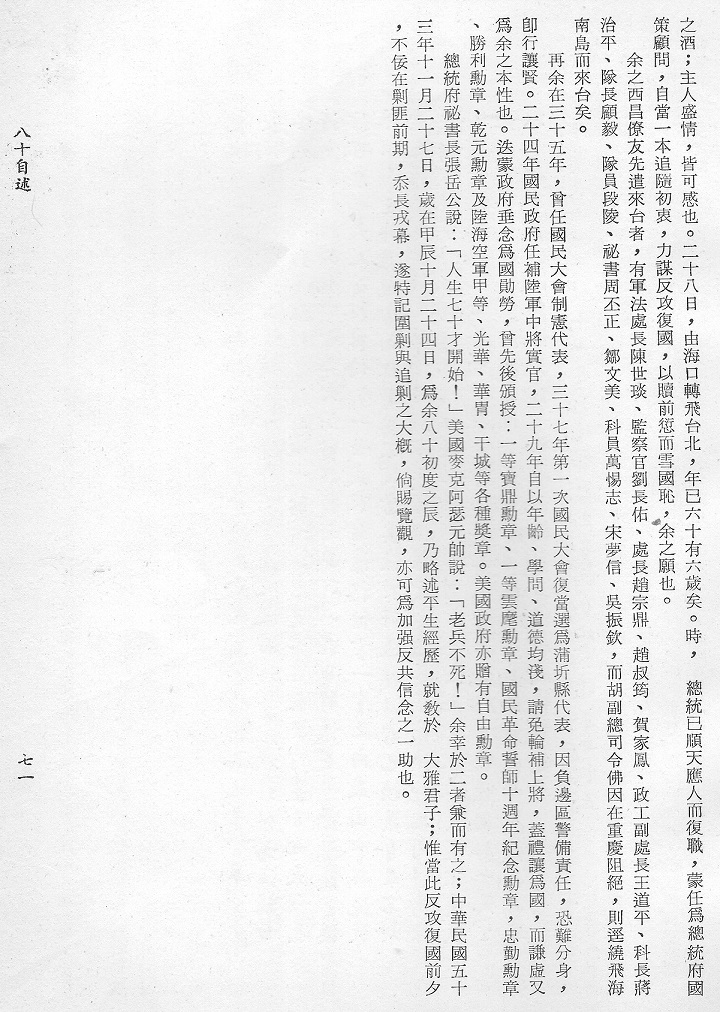 之酒；主人盛情，皆可感也。二十八日，由海口轉飛台北，年巳六十有六歲矣。時，　總統已順天應人而復職，蒙任爲總統府國
策顧問，自當一本追隨初衷，力謀反攻復國，以贖前愆而雪國恥，余之願也。
余之西昌僚友先遣來台者，有軍法處長陳世琰、監察官劉長佑、處長趙宗鼎、趙叔筠、賀家鳳、政工副處長王道平、科長蔣
治平、隊長顧毅、隊員段陵、祕書周丕正、鄒文美、科員萬惕志、宋夢信、吳振欽，而胡副總司令佛因在重慶阻絕，則逕繞飛海
南島而來台矣。
再余在三十五年，曾任國民大會制憲代表，三十七年第一次國民大會復當選爲蒲圻縣代表，因負邊區警備責任，恐難分身，
卽行讓賢。二十四年國民政府任補陸軍中將實官，二十九年自以年齡、學問、道德均淺，請免輪補上將，蓋禮讓爲國，而謙虛又
爲余之本性也。迭蒙政府垂念爲國勛勞，曾先後頒授：一等寶鼎勳章、一等雲麾勳章、國民革命誓師十週年紀念勳章，忠勤勳章
、勝利勳章、乾元勳章及陸海空軍甲等、光華、華胄、干城等各種獎章。美國政府亦贈有自由勳章。
總統府祕書長張岳公說：「人生七十才開始！」美國麥克阿瑟元帥說：「老兵不死！」余幸於二者兼而有之；中華民國五十
三年十一月二十七日，歲在甲辰十月二十四日，爲余八十初度之辰，乃略述平生經歷，就教於　大雅君子；惟當此反攻復國前夕
，不佞在剿匪前期，忝長戎幕，遂特記圍剿與追剿之大槪，倘賜覽觀，亦可爲加强反共信念之一助也。
八十自述
七一